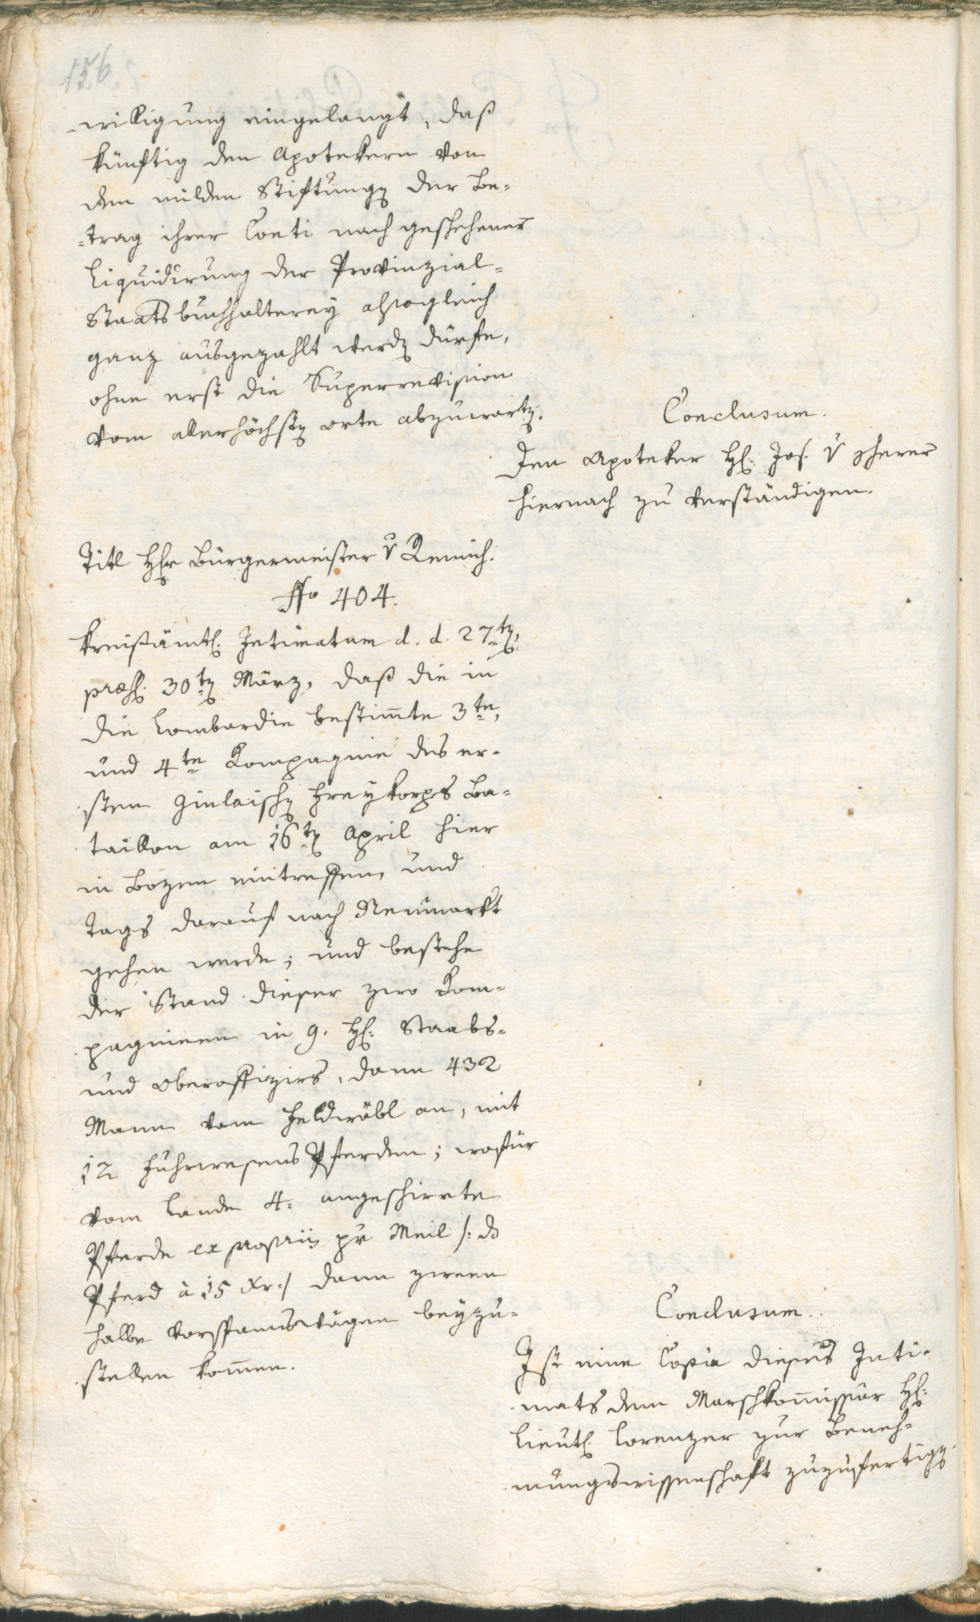 156
-willigung eingelangt, daß
künftig den Apotekern von
den milden Stiftungen der Be-
-trag ihrer Conti nach geschehener
Liquidirung der Provinzial-
Staatsbuchhalterey alsogleich
ganz ausgezahlt werden dürfte,
ohne erst die Superrevision
vom allerhöchsten orte abzuwarten.
Conclusum.
Dem Apoteker H: Jos. v
hiernach zu verständigen.
Titl Hhr Bürgermeister v Remich.
No 404.
Kreisämtl: Intimatum d. d. 27ten,
præs: 30ten März, daß die in
die Lombardie bestimte 3te,
und 4te Kompagnie des er-
sten Freykorps Ba-
taillon am 16ten April hier
in Bozen eintreffen, und
tags darauf nach Neumarkt
gehen werde; und bestehe
der Stand dieser zwo Kom-
pagnieen in 9. H: Staabs-
und Oberoffiziers, dann 432
Mann vom Feldwäbl an, mit
12 Fuhrwesens Pferden; wofür
vom Lande 4: angeschirrte
Pferde ex propriis pr Meil /: do
Pferd à 15 Xr:/ dann zween
halbe Vorspannswägen beyzu-
stellen komen.
Conclusum.
Ist eine Copia dieses Inti-
mats dem Marschkomissär H:
Lieut: Lorenzer zur Beneh-
mungswissenschaft zuzufertigen